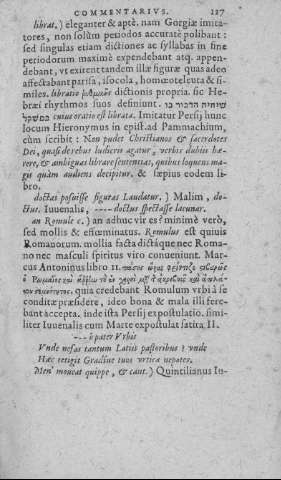 COMMENTARIVS. 127
librat.) éleganter & aptè. nam Gorgiæ imita-
tores, non solùm periodos accuratè polibant:
sed singulas etiam dictiones ac syllabas in fine
periodorum maximè expendebant atq. appen-
debant, vt exirent tandem illæ figuræ quas adeo
affectabant parisa, isocola, homœoteleuta & si-
miles. libratio dictionis propria. sic He-
bræi rhythmos suos definiunt.
cuius oratio est librata. Imitatur Persij hunc
locum Hieronymus in epist. ad Pammachium,
cùm scribit: Non pudet Christianos & sacerdotes
Dei, quasi de rebus ludicris agatur, verbis dubiis hæ-
rere, & ambiguas librare sententias, quibus loquens ma-
gis quàm audiens decipitur. & sæpius eodem li-
bro.
doctas posuisse figuras Laudatur.) Malim, do-
ctus. Iuuenalis, ---- doctus spectasse lacunar.
an Romule c.) an adhuc vir es? minimè verò,
sed mollis & effœminatus. Romulus est quiuis
Romanorum. mollia facta dictáque nec Roma-
no nec masculi spiritus viro conueniunt. Mar-
cus Antoninus libro II.
quia credebant Romulum vrbi à se
conditæ præsidere, ideo bona & mala illi fere-
bant accepta. inde ista Persij expostulatio. simi-
liter Iuuenalis cum Marte expostulat satira II.
--- ô pater Vrbis
Vnde nefas tantum Latiis pastoribus? vnde
Hæc tetigit Gradiue tuos vrtica nepotes.
Men' moueat quippe, & cant.) Quintilianus In-